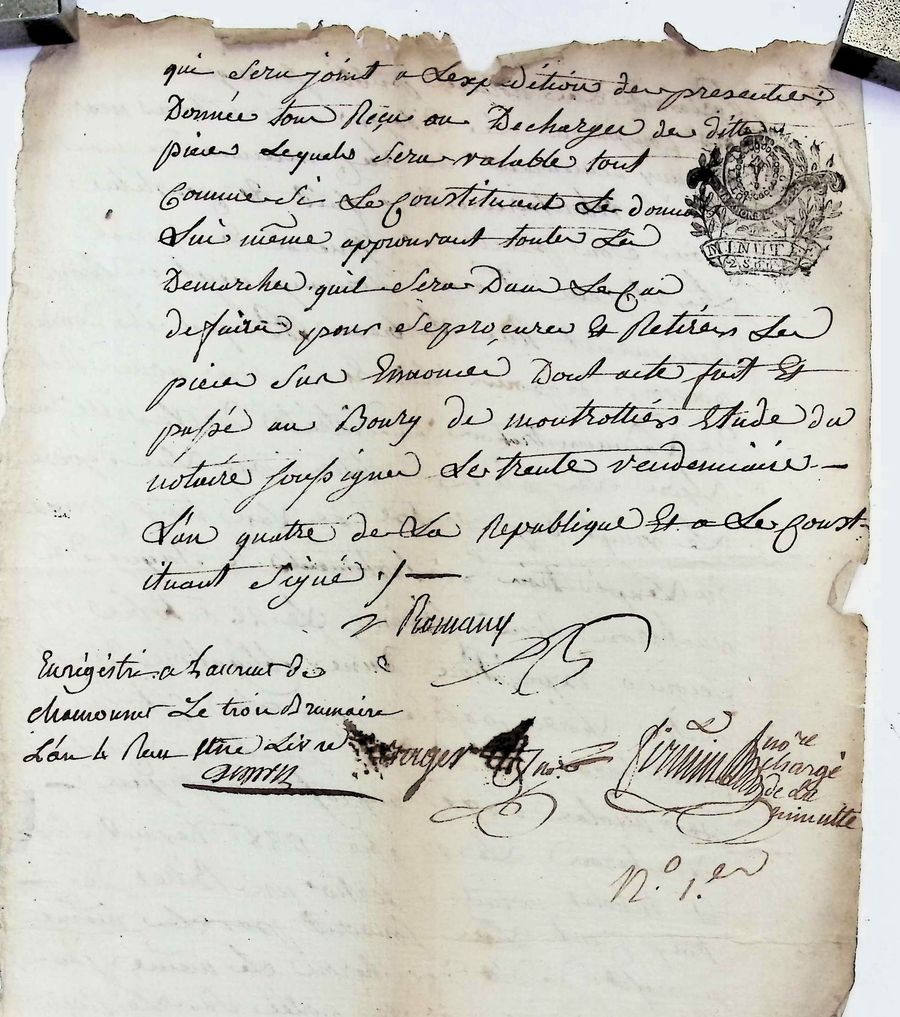 qui sera joint a Lexpedition des presentes;
Donnée tous Reçus ou Decharges de dittes
pieces Lequels sera valable tout
Comme si Le Constituant Les donne
Lui même approuvant toutes Les
Demarches quil sera Dans Le Cas
defaire pour seprocurer Et Retirer Les
pieces sus Ennoncé Dont acte fait Et
passé au Bourg de montrottiers Etude du
notaire soussigner Le trente vendemiaire
L'an quatre de La Republique Et a Le Const-
ituant signé ./.
Romany
MINUTE
2. SOUS
Enregistré a Laurent de
chamousset Le trois Brumaire
L'an 4 Reçu Une Livre
no.re
chargé
de La
minutte
N.o 1.er